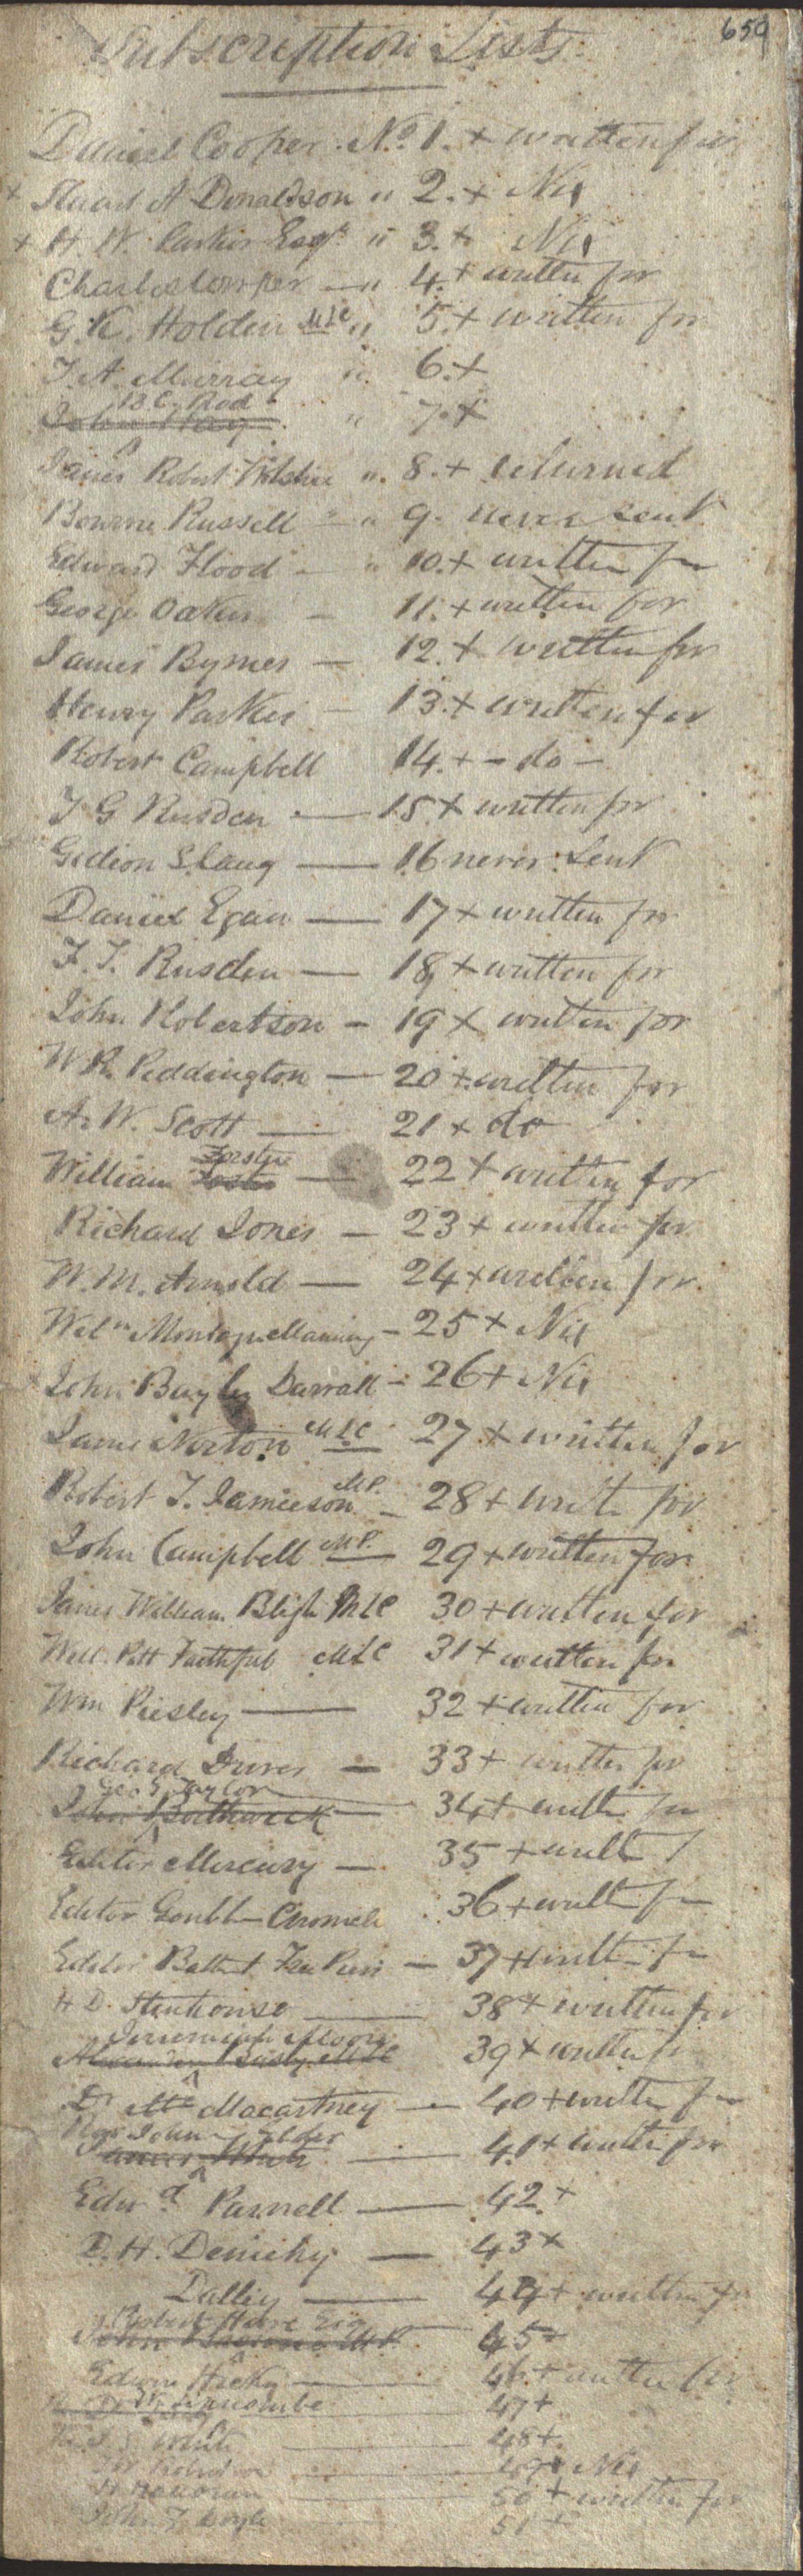 659
Subscription Lists
Daniel Cooper. No 1. + written for
+ Stuart A Donaldson " 2. + Nix
+ H. W. Parker Esqr " 3. + Nix
Charles Cowper — " 4. + written for
G. K. Holden MLC " 5. + written for
T. A. Murray " 6. +
B. C. Rod
John Hay " 7. +
James Robert Wilshire " 8. + returned
Bourne Russell — " 9. never sent
Edward Flood — " 10. + written for
George Oakes — 11. + written for
James Byrnes — 12. + written for
Henry Parkes — 13. + written for
Robert Campbell 14. + - do -
T G Rusden — 15 + written for
Gedion S. Lang — 16 never sent
Daniel Egan — 17 + written for
F. T. Rusden — 18 + written for
John Robertson — 19 + written for
W R. Piddington — 20 + written for
A. W. Scott — 21 + do
Forster
William Foster — 22 + written for
Richard Jones — 23 + written for
W. M. Arnold — 24 + written for
Willm Montagu Manning — 25 + Nix
John Bayley Darvall — 26 + Nix
James Norton MLC 27 + written for
Robert T. Jamieson MP. — 28 + writt for
John Campbell MP. — 29 + written for
James William Bligh MLC 30 + written for
Will. Pitt Faithful MLC 31 + written for
Wm Piesley — 32 + written for
Richard Driver — 33 + written for
Geo S. Taylor
John Borthwick — 34 + writte for
Editor Mercury — 35 + writt f
Editor Goulb— Cronicle 36 + writt for
Editor Batht Free Press — 37 + writt for
H D. Stenhouse — 38 + written for
Jeremiah Moore
Alexander Busby MLC 39 + written f
Dr Mc Macartney — 40 + writte for
Rev John Elder
James White — 41 + writte for
Edwd Parnell — 42. +
D. H. Deniehy — 43 +
Dalley — 44 + written for
Robert Hoare Esq
John MP. 45 +
Edwin Hickey — 46. + written for
47 +
White — 48 +
49 + Nix
H Halloran — 50 + written for
John F Doyle — 51 +